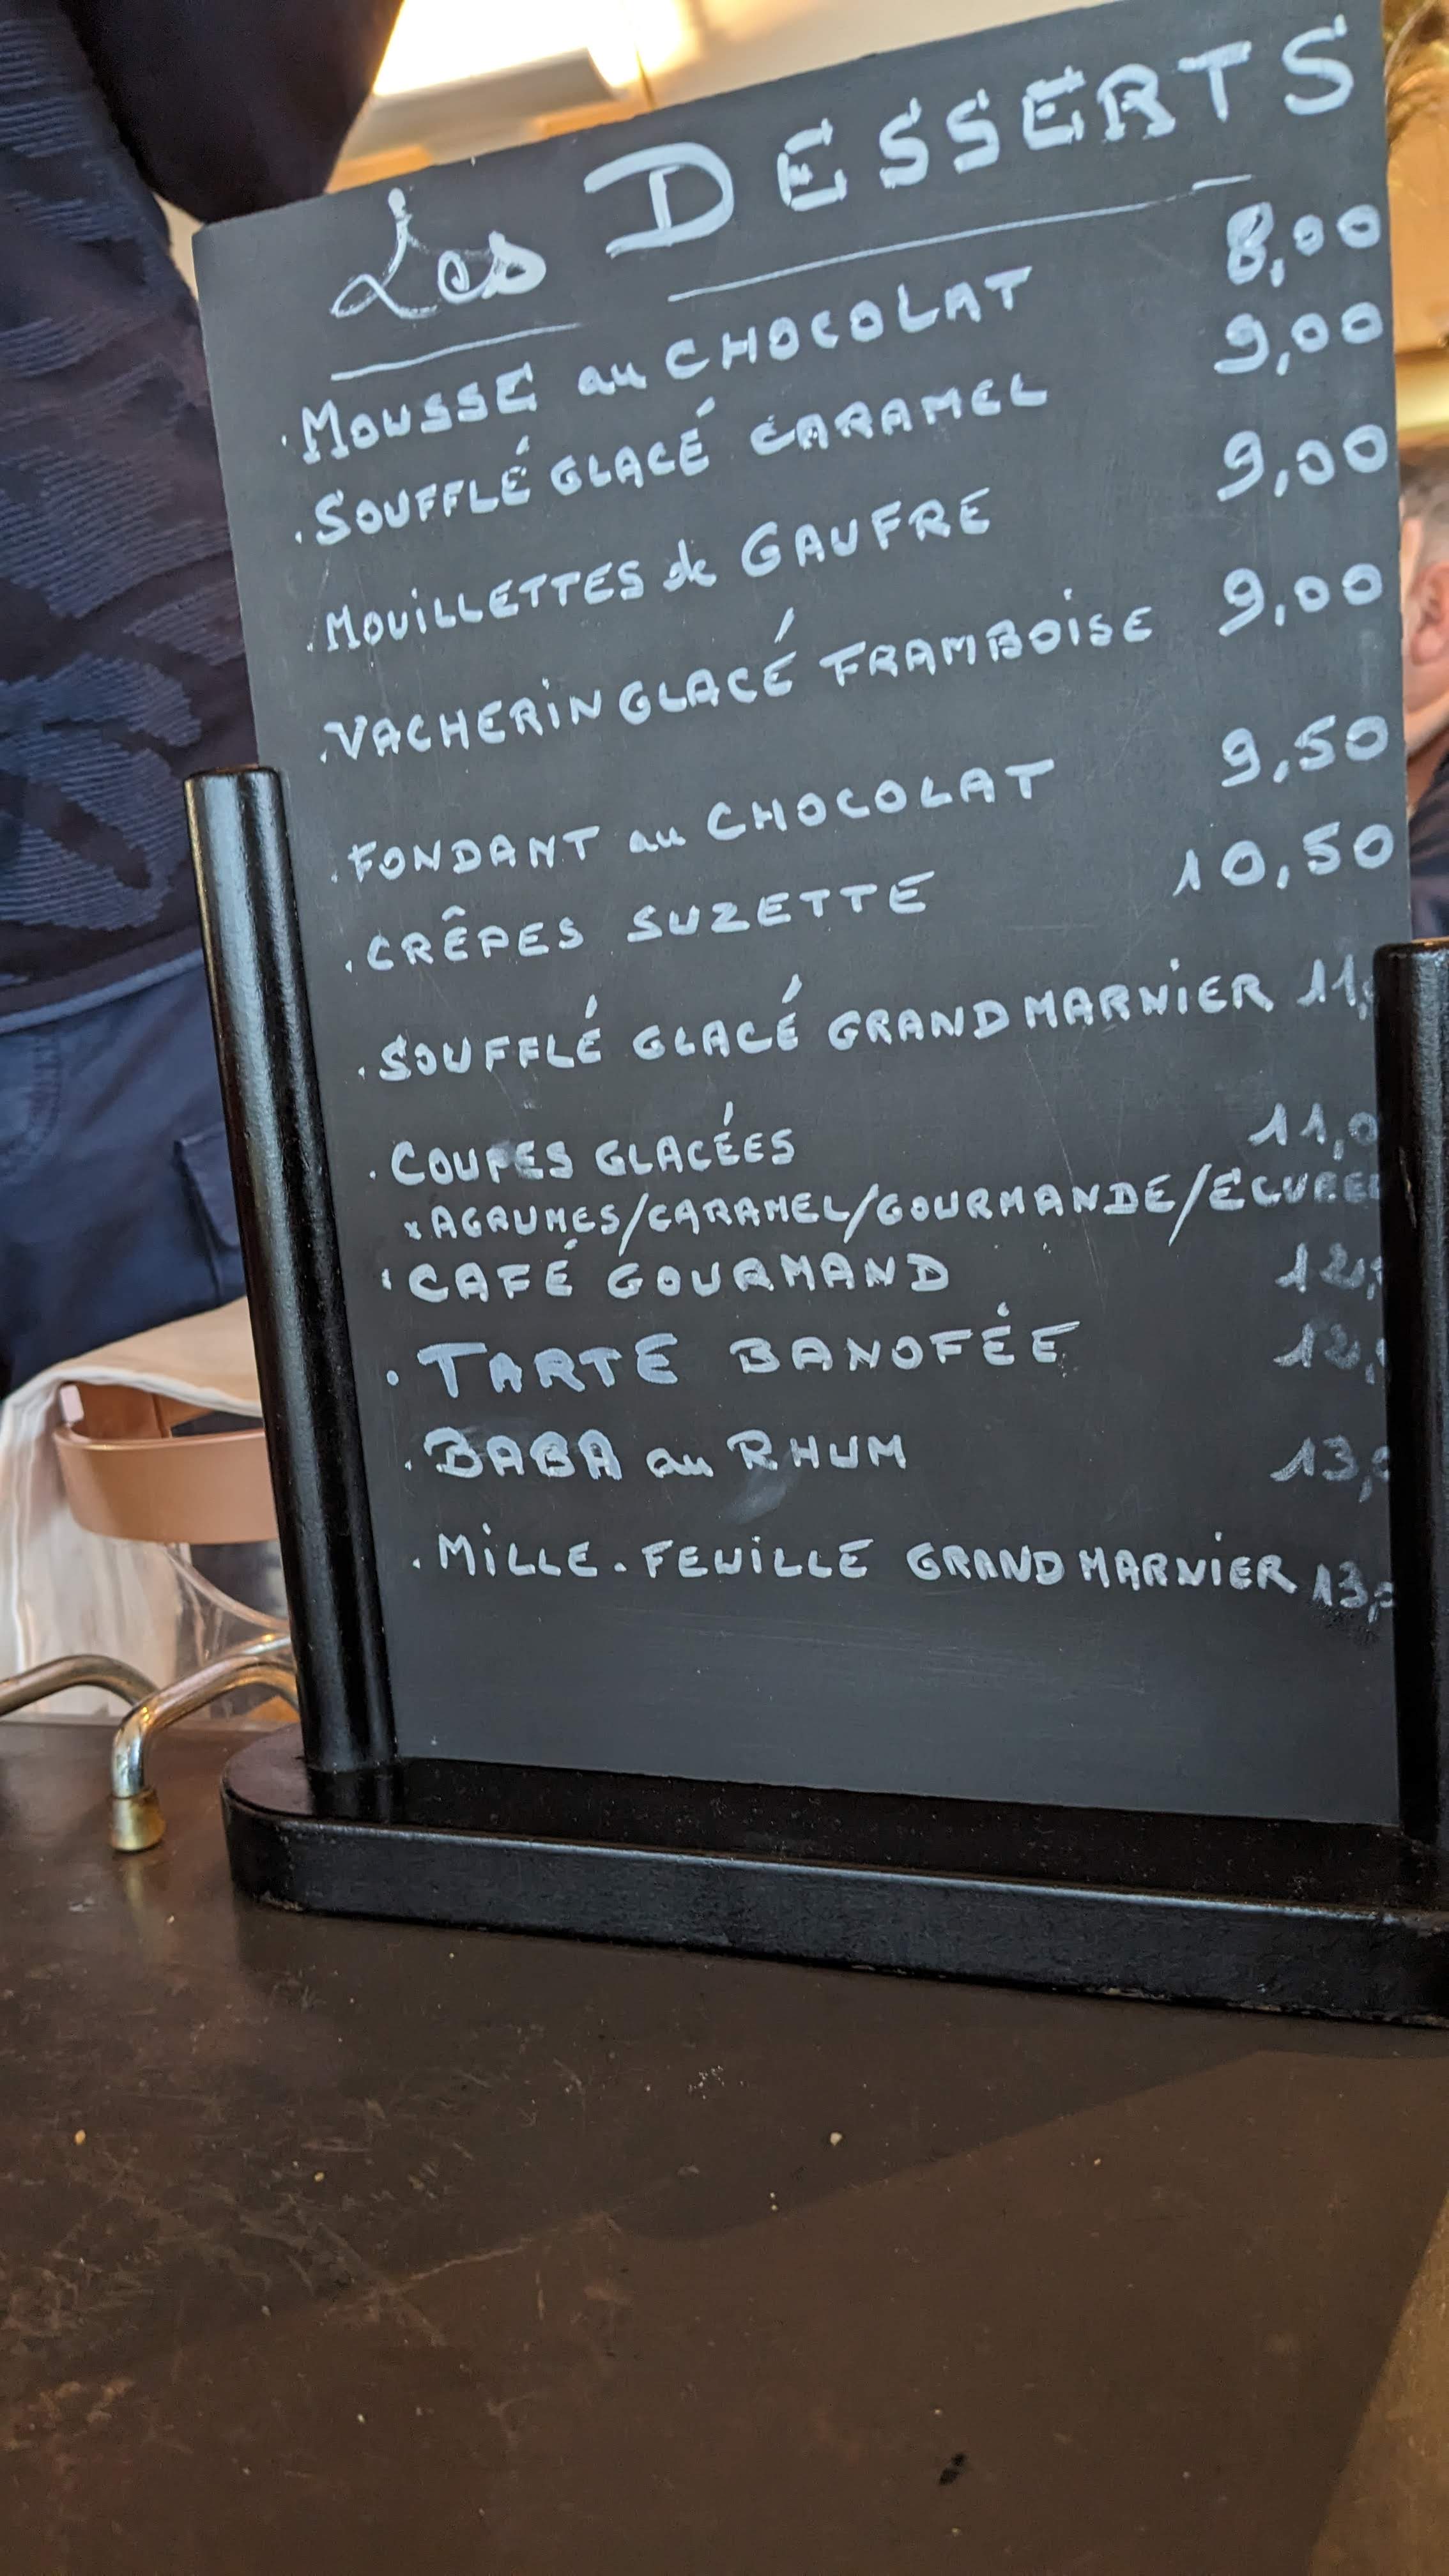 Les DESSERTS
. MOUSSE au CHOCOLAT 8,00
. SOUFFLÉ GLACÉ CARAMEL 9,00
. MOUILLETTES de GAUFRE 9,00
. VACHERIN GLACÉ FRAMBOISE 9,00
. FONDANT au CHOCOLAT 9,50
. CRÊPES SUZETTE 10,50
. SOUFFLÉ GLACÉ GRAND MARNIER 11,
. COUPES GLACÉES 11,0
x AGRUMES/CARAMEL/GOURMANDE/ECUREE
. CAFÉ GOURMAND 12,
. TARTE BANOFÉE 12,
. BABA au RHUM 13,
. MILLE-FEUILLE GRAND MARNIER 13,